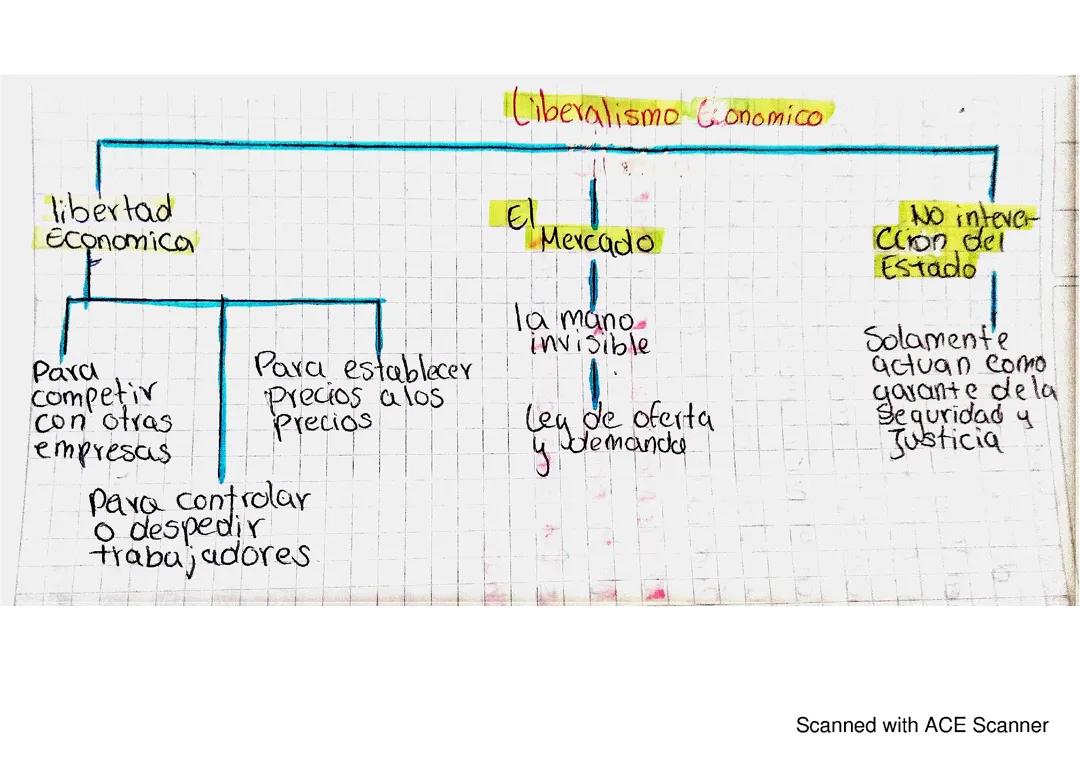 Liberalismo Economico
libertad
Economica
El
Mercado
No interver-
cción del
Estado
la mano
invisible
Ley de oferta
y demanda
Solamente
actuan como
garante de la
Seguridad y
Justicia
Para
competir
con otras
empresas
Para establecer
precios a los
precios
Para controlar
o despedir
trabajadores
Scanned with ACE Scanner